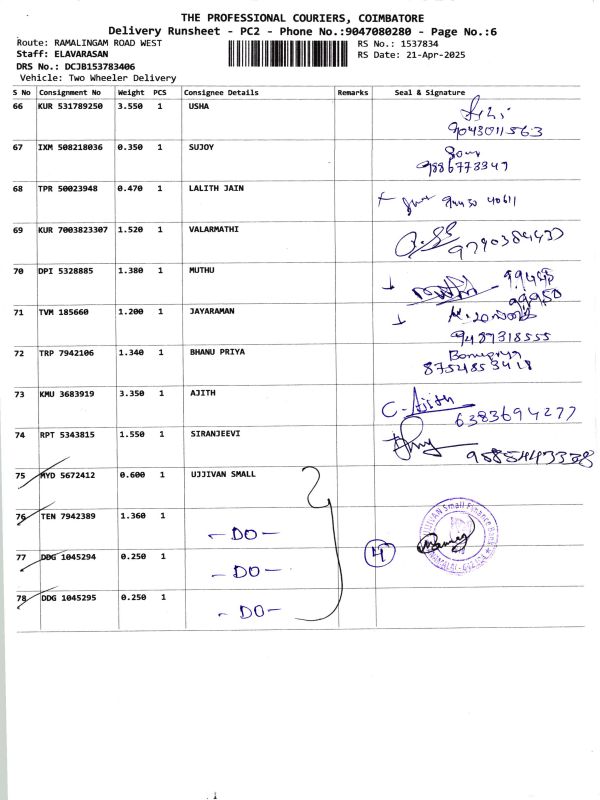 THE PROFESSIONAL COURIERS, COIMBATORE
Delivery Runsheet - PC2 - Phone No.:9047080280 - Page No.:6
Route: RAMALINGAM ROAD WEST
RS No.: 1537834
Staff: ELAVARASAN
RS Date: 21-Apr-2025
DRS No.: DCJB153783406
Vehicle: Two Wheeler Delivery
S No Consignment No Weight PCS Consignee Details Remarks Seal & Signature
66 KUR 531789250 3.550 1 USHA
9043011563
67 IXM 508218036 0.350 1 SUJOY
9886773347
68 TPR 50023948 0.470 1 LALITH JAIN
69 KUR 7003823307 1.520 1 VALARMATHI
70 DPI 5328885 1.380 1 MUTHU
71 TVM 185660 1.200 1 JAYARAMAN
9487318555
72 TRP 7942106 1.340 1 BHANU PRIYA
Banupriya
8754853418
73 KMU 3683919 3.350 1 AJITH
C. Ajith
6383694277
74 RPT 5343815 1.550 1 SIRANJEEVI
75 MYD 5672412 0.600 1 UJJIVAN SMALL
76 TEN 7942389 1.360 1 - DO -
77 DDG 1045294 0.250 1 - DO - 4
78 DDG 1045295 0.250 1 - DO -
UJJIVAN Small Finance Bank